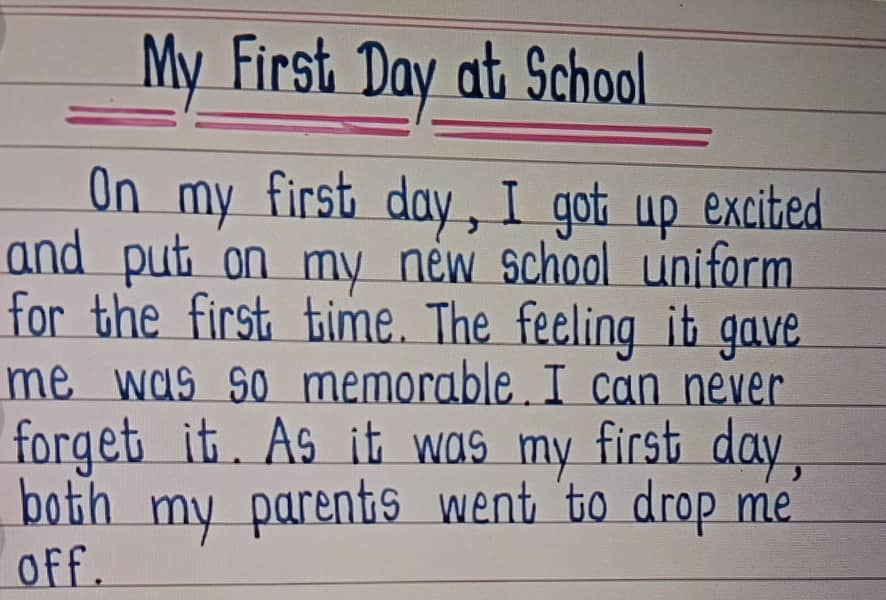 My First Day at School
On my first day, I got up excited
and put on my new school uniform
for the first time. The feeling it gave
me was so memorable. I can never
forget it. As it was my first day,
both my parents went to drop me
off.